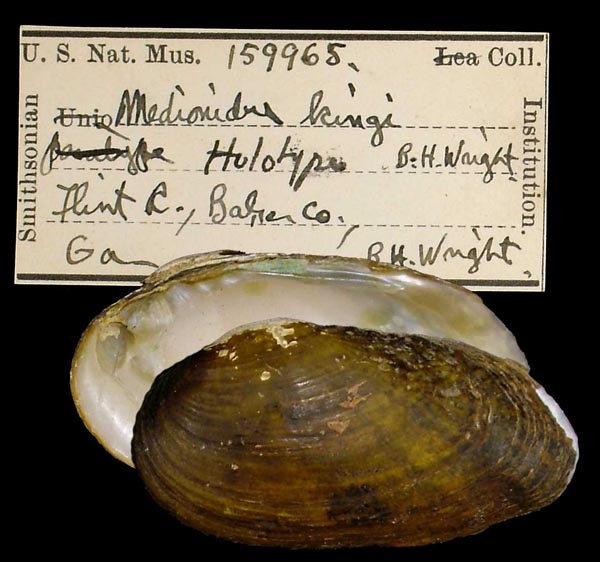 U. S. Nat. Mus. 159965. Lea Coll.
Smithsonian
Unio Medionidus kingi
Holotype B.H. Wright
Flint R., Baker Co.,
Ga B.H. Wright,
Institution.